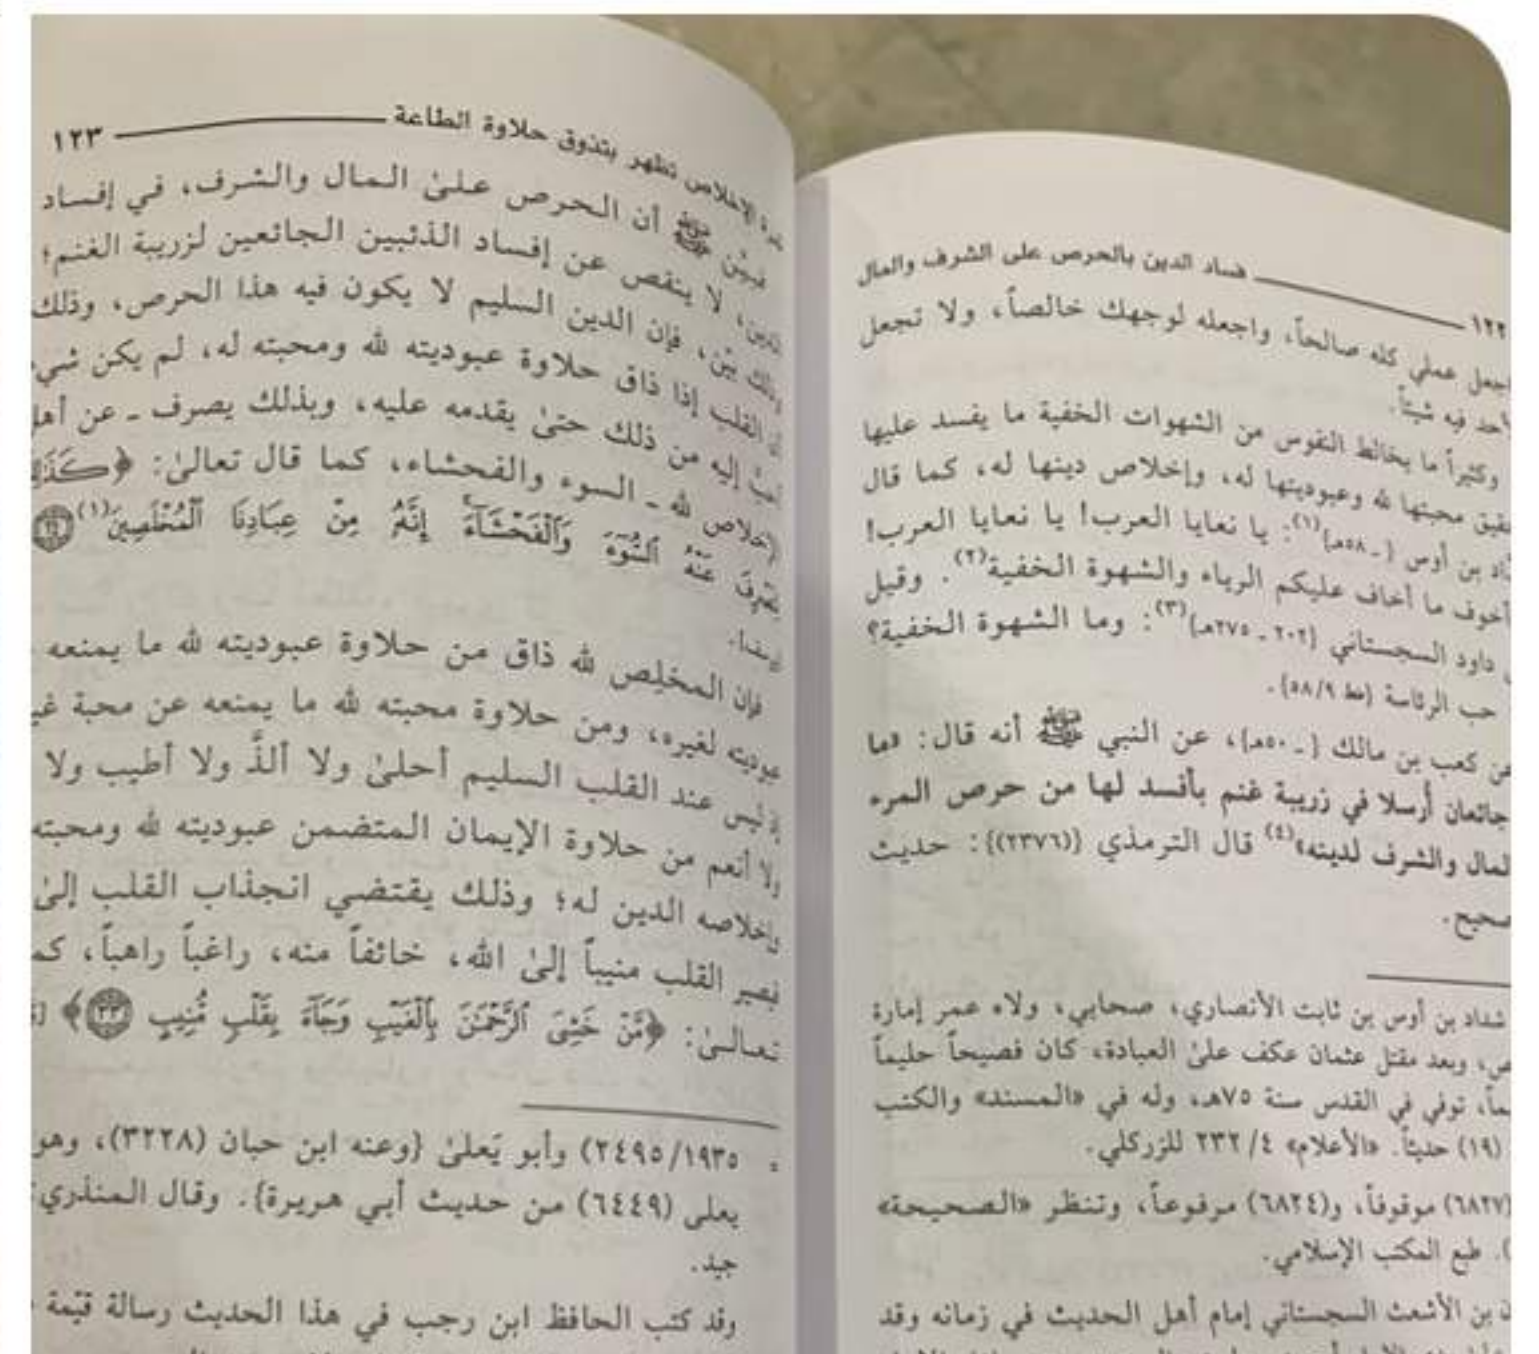 ١٢٢ فساد الدين بالحرص على الشرف والمال
اجعل عملي كله صالحاً، واجعله لوجهك خالصاً، ولا تجعل
لأحد فيه شيئاً.
وكثيراً ما يخالط النفوس من الشهوات الخفية ما يفسد عليها
محبتها لله وعبوديتها له، وإخلاص دينها له، كما قال
بن أوس {ـ ٥٨هـ}(١): يا نعايا العرب! يا نعايا العرب!
أخوف ما أخاف عليكم الرياء والشهوة الخفية(٢). وقيل
داود السجستاني {٢٠٢ ـ ٢٧٥هـ}(٣): وما الشهوة الخفية؟
حب الرئاسة {خط ٥٨/٩}.
عن كعب بن مالك {ـ ٥٠هـ}، عن النبي ﷺ أنه قال: «ما
جائعان أرسلا في زريبة غنم بأفسد لها من حرص المرء
المال والشرف لدينه»(٤) قال الترمذي {(٢٣٧٦)}: حديث
صحيح.
شداد بن أوس بن ثابت الأنصاري، صحابي، ولاه عمر إمارة
وبعد مقتل عثمان عكف علىٰ العبادة، كان فصيحاً حليماً
توفي في القدس سنة ٧٥هـ، وله في «المسند» والكتب
(١٩) حديثاً. «الأعلام» ٤/ ٢٣٢ للزركلي.
(٦٨٢٧) موقوفاً، و(٦٨٢٤) مرفوعاً، وتنظر «الصحيحة»
). طبع المكتب الإسلامي.
بن الأشعث السجستاني إمام أهل الحديث في زمانه وقد
الإخلاص تظهر بتذوق حلاوة الطاعة ١٢٣
فبيّن ﷺ أن الحرص علىٰ المال والشرف، في إفساد
الدين، لا ينقص عن إفساد الذئبين الجائعين لزريبة الغنم؛
وذلك بيّن، فإن الدين السليم لا يكون فيه هذا الحرص، وذلك
أن القلب إذا ذاق حلاوة عبوديته لله ومحبته له، لم يكن شيء
أحبّ إليه من ذلك حتىٰ يقدمه عليه، وبذلك يصرف ـ عن أهل
الإخلاص لله ـ السوء والفحشاء، كما قال تعالىٰ: ﴿كَذَٰلِكَ
لِنَصْرِفَ عَنْهُ ٱلسُّوٓءَ وَٱلْفَحْشَآءَ إِنَّهُۥ مِنْ عِبَادِنَا ٱلْمُخْلَصِينَ(١)
فإن المخلِص لله ذاق من حلاوة عبوديته لله ما يمنعه
عبوديته لغيره، ومن حلاوة محبته لله ما يمنعه عن محبة
إذ ليس عند القلب السليم أحلىٰ ولا ألذَّ ولا أطيب ولا
ولا أنعم من حلاوة الإيمان المتضمن عبوديته لله ومحبته
وإخلاصه الدين له؛ وذلك يقتضي انجذاب القلب إلىٰ
فيصير القلب منيباً إلىٰ الله، خائفاً منه، راغباً راهباً،
تعالىٰ: ﴿مَّنْ خَشِىَ ٱلرَّحْمَٰنَ بِٱلْغَيْبِ وَجَآءَ بِقَلْبٍ مُّنِيبٍ ٣٣﴾
= ٢٤٩٥/١٩٣٥) وأبو يَعلىٰ {وعنه ابن حبان (٣٢٢٨)، وهو
يعلى (٦٤٤٩) من حديث أبي هريرة}. وقال المنذري:
جيد.
وقد كتب الحافظ ابن رجب في هذا الحديث رسالة قيّمة